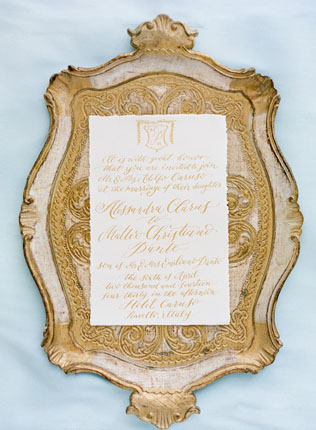 It is with great honor
that you are invited to join
Mr & Mrs Adolfo Caruso
at the marriage of their daughter
Alessandra Clarus
to
Walter Christiano
Dante
son of Mr & Mrs Emiliano Dante
the sixth of April
two thousand and fourteen
four thirty in the afternoon
Hotel Caruso
Ravello, Italy